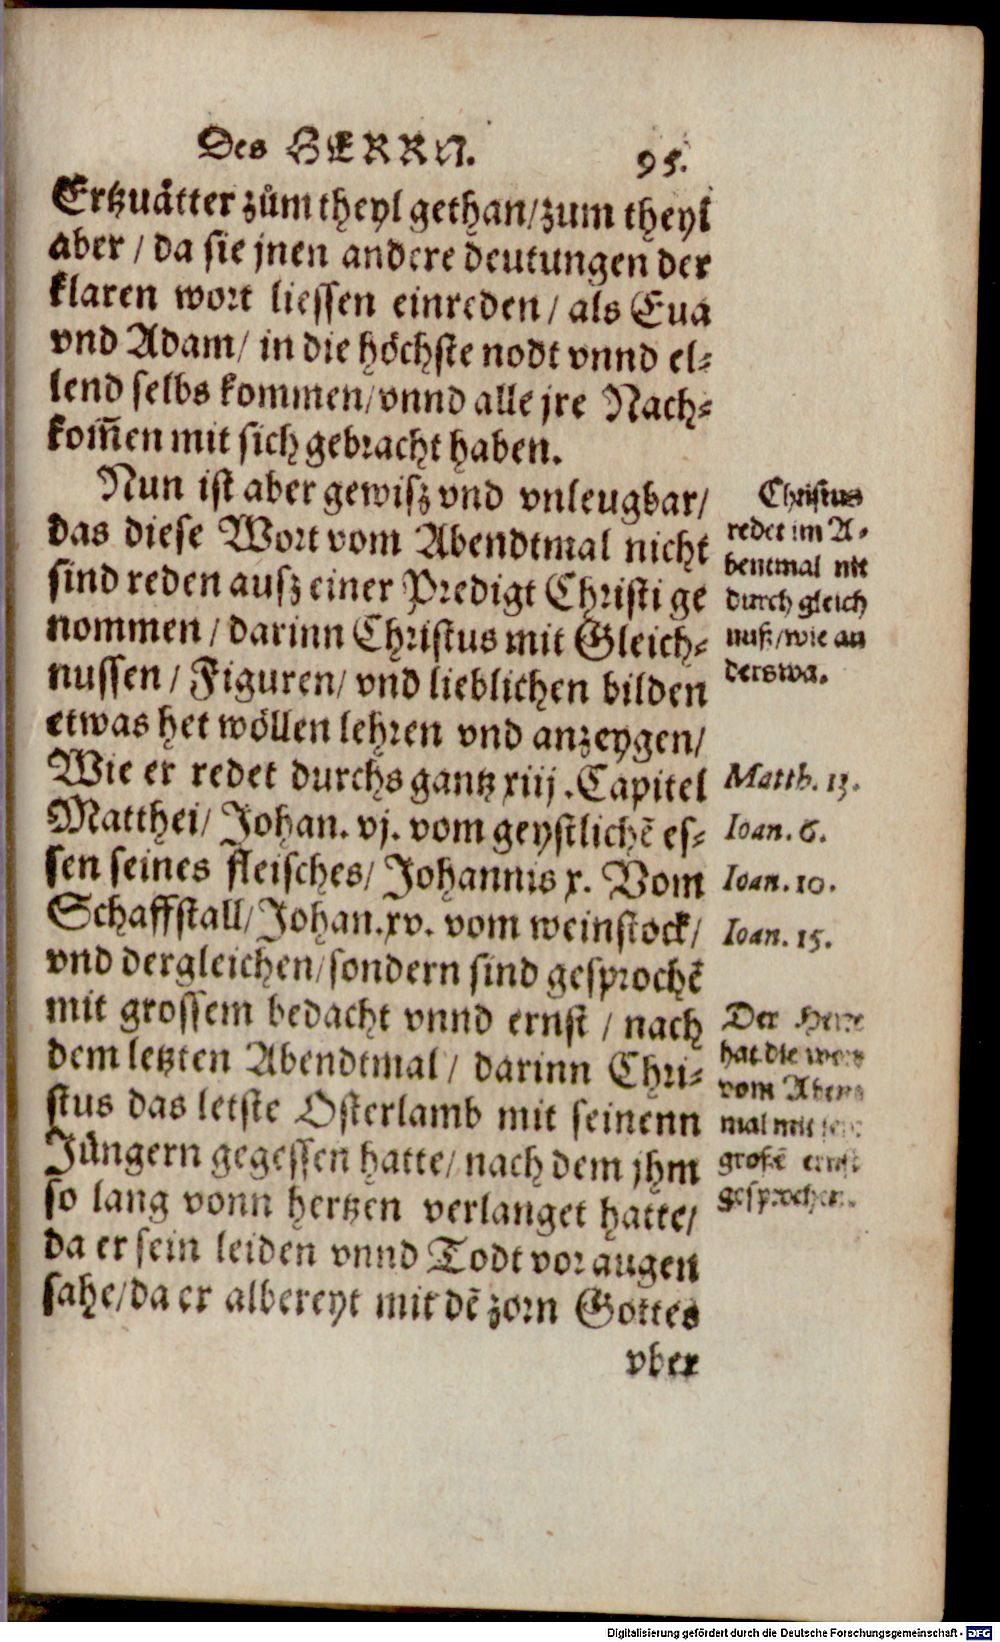 Des HERRN. 95.
Ertzuätter zům theyl gethan/zum theyl
aber / da sie jnen andere deutungen der
klaren wort liessen einreden / als Eua
vnd Adam/ in die höchste nodt vnnd el⸗
lend selbs kommen/vnnd alle jre Nach⸗
kom̃en mit sich gebracht haben.
Nun ist aber gewisz vnd vnleugbar/
das diese Wort vom Abendtmal nicht
sind reden ausz einer Predigt Christi ge
nommen / darinn Christus mit Gleich⸗
nussen / Figuren/ vnd lieblichen bilden
etwas het wöllen lehren vnd anzeygen/
Wie er redet durchs gantz xiij. Capitel
Matthei/ Johan. vj. vom geystlichẽ es⸗
sen seines fleisches/ Johannis x. Vom
Schaffstall/ Johan.xv. vom weinstock/
vnd dergleichen/sondern sind gesprochẽ
mit grossem bedacht vnnd ernst / nach
dem letzten Abendtmal / darinn Chri⸗
stus das letste Osterlamb mit seinenn
Jüngern gegessen hatte/ nach dem jhm
so lang vonn hertzen verlanget hatte/
da er sein leiden vnnd Todt vor augen
sahe/da er albereyt mit dẽ zorn Gottes
vber
Christus
redet im A⸗
bentmal nit
durch gleich
nuß/wie an
derswa.
Matth. 13.
Ioan. 6.
Ioan. 10.
Ioan. 15.
Der Herre
hat die wort
vom Abent
mal mit
großẽ ernst
gesprochen.
Digitalisierung gefördert durch die Deutsche Forschungsgemeinschaft - DFG